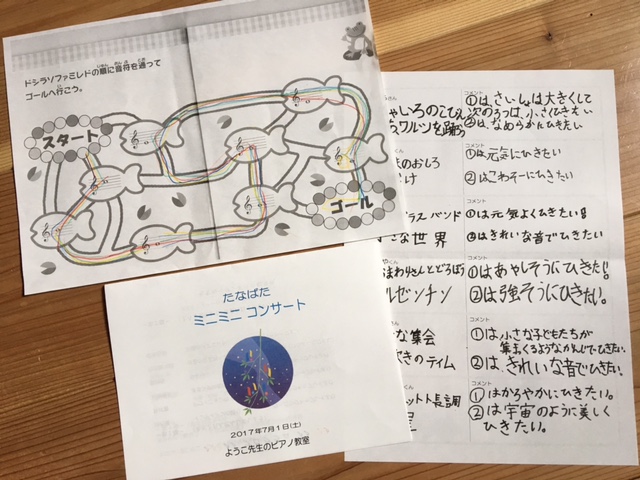 ドシラソファミレドの順に音符を通って
ゴールへ行こう。
スタート
ゴール
たなばた
ミニミニ コンサート
2017年7月1日(土)
ようこ先生のピアノ教室
コメント
①は、さいしょは大きくして
②は、なめらかにひきたい
コメント
①は元気にひきたい
②はこわそーにひきたい
コメント
①は元気よくひきたい!!
②はきれいな音でひきたい
ラスバンド
な世界
コメント
まわりさんとどろぼう
ルゼンチン
①はあやしそうにひきたい!
②は強そうにひきたい。
コメント
な集会
きのタイム
①は、小さな子どもたちが
集まってくるようなかんじでひきたい。
②は、きれいな音でひきたい。
コメント
ット長調
①はかろやかにひきたい。
②は宇宙のように美しく
ひきたい。